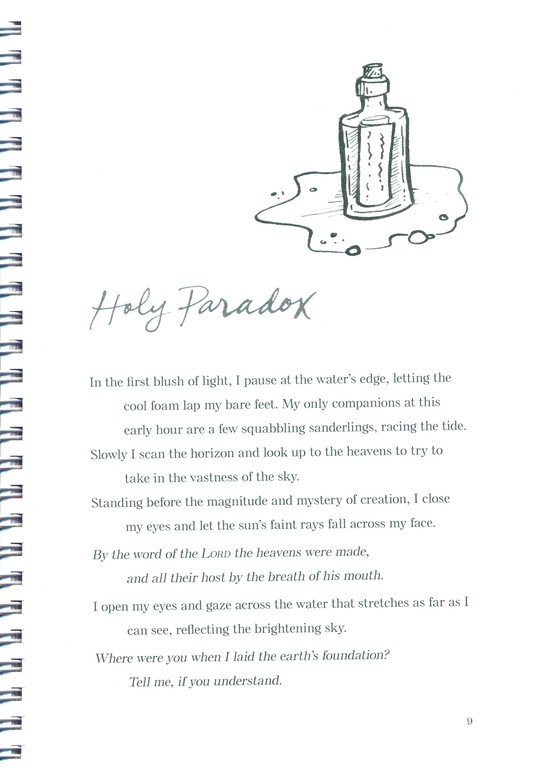 Holy Paradox
In the first blush of light, I pause at the water's edge, letting the
cool foam lap my bare feet. My only companions at this
early hour are a few squabbling sanderlings, racing the tide.
Slowly I scan the horizon and look up to the heavens to try to
take in the vastness of the sky.
Standing before the magnitude and mystery of creation, I close
my eyes and let the sun's faint rays fall across my face.
By the word of the LORD the heavens were made,
and all their host by the breath of his mouth.
I open my eyes and gaze across the water that stretches as far as I
can see, reflecting the brightening sky.
Where were you when I laid the earth's foundation?
Tell me, if you understand.
9